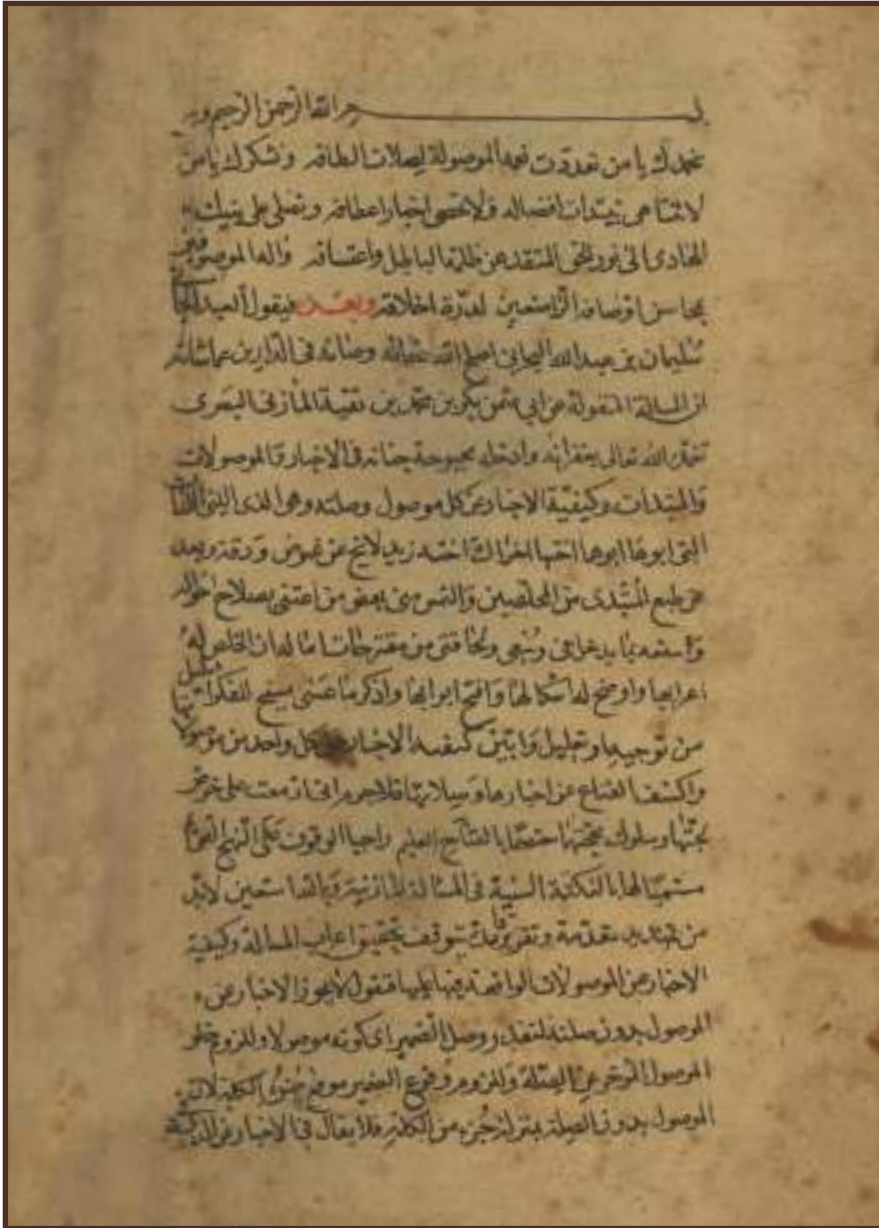 بسم الله الرحمن الرحيم وبه
نحمدك يا من تعددت نعمه الموصولة بصلات الطافه ونشكرك يا من
لا تتناهى مبتدات افضاله ولا تحصى اخبار اعطافه ونصلي على نبيك
الهادي الى نور الحق المنقذ من ظلمة الباطل واعتسافه واله الموصوفين
بمحاسن اوصافه الراضعين لدرة اخلافه وبعد فيقول العبد
سليمان بن عبد الله البحراني اصلح الله وصانه في الدارين عما شانه
ان المسالة المنقولة عن ابي عثمن بكر بن محمد بن بقية المازني البصري
تغمده الله تعالى بغفرانه وادخله بحبوحة جنانه في الاخبار والموصولات
والمبتدات وكيفية الاخبار عن كل موصول وصلته وهو الذي التي
التي ابوها ابوها اختها اخته زيد لا تخ عن غموض ودقة وبعد
عن طبع المبتدى من المحصلين والتمس مني بعض من اعتنى بصلاح احواله
ان الخص له
اعرابها واوضح له اشكالها وافتح ابوابها واذكر ما عسى يسنح للفكر
من توجيه وتحليل وابين كيفية الاخبار عن كل واحد من
واكشف القناع عن اخبارها وصلاتها فلا جرم
وسلوك محجتها معتصما بالفتاح العليم راجيا الوقوف على النهج
مسميا لها بالنكتة السنية في المسالة المازنية وبالله استعين لابد
من تمهيد مقدمة وتقرير يتوقف تحقيق اعراب المسالة وكيفية
الاخبار عن الموصولات الواقعة فيها عليها فنقول لا يجوز الاخبار عن
الموصول بدون صلته لتعذر وصل الضمير اي كونه موصولا وللزوم خلو
الموصول المؤخر عن الصلة وللزوم وقوع الضمير موضع جزء الكلمة لان
الموصول بدون الصلة بمنزلة جزء من الكلمة فلا يقال في الاخبار عن الذي